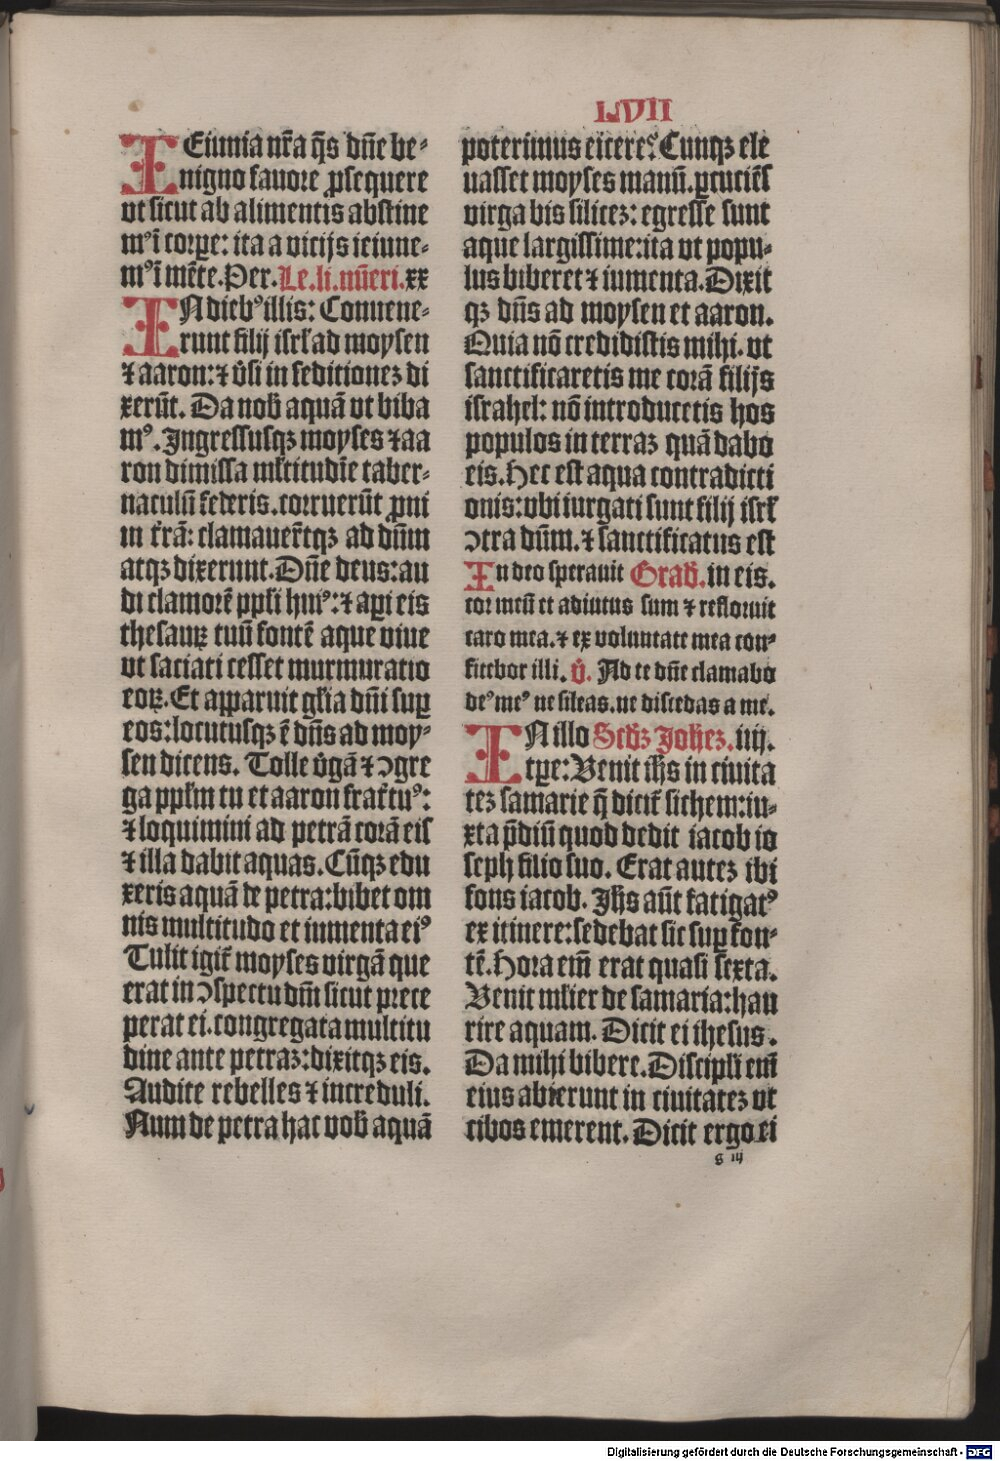 LVII
IEiunia nr̄a q̄s dn̄e be⸗
nigno fauore ꝓsequere
vt sicut ab alimentis abstine
mꝰ ī corꝑe: ita a vicijs ieiune⸗
mꝰ ī mēte. Per. Le. li. nūeri. xx
IN diebꝰ illis: Conuene⸗
runt filij isrl̄ ad moysen
⁊ aaron: ⁊ v̓si in seditioneꝫ di
xerūt. Da nob̄ aquā vt biba
mꝰ. Ingressusqꝫ moyses ⁊ aa
ron dimissa ml̄titudīe taber⸗
naculū federis. corruerūt ꝓni
in t̄rā: clamauer̄tqꝫ ad dn̄m
atqꝫ dixerunt. Dn̄e deus: au
di clamorē ppl̄i huiꝰ: ⁊ aꝑi eis
thesauꝝ tuū fontē aque viue
vt saciati cesset murmuratio
eoꝝ. Et apparuit gl̄ia dn̄i suꝑ
eos: locutusqꝫ ē dn̄s ad moy⸗
sen dicens. Tolle v̓gā ⁊ ↄgre
ga ppl̄m tu et aaron frat̄ tuꝰ:
⁊ loquimini ad petrā corā eis
⁊ illa dabit aquas. Cūqꝫ edu
xeris aquā de petra: bibet om
nis multitudo et iumenta eiꝰ
Tulit igit̄ moyses virgā que
erat in ↄspectu dn̄i sicut prece
perat ei. congregata multitu
dine ante petraꝫ: dixitqꝫ eis.
Audite rebelles ⁊ increduli.
Num de petra hac vob̄ aquā
poterimus eicere? Cunqꝫ ele
uasset moyses manū. ꝑcuciēs
virga bis siliceꝫ: egresse sunt
aque largissime: ita vt popu⸗
lus biberet ⁊ iumenta. Dixit
qꝫ dn̄s ad moysen et aaron.
Quia nō credidistis mihi. vt
sanctificaretis me corā filijs
israhel: nō introducetis hos
populos in terraꝫ quā dabo
eis. Hec est aqua contradicti
onis: vbi iurgati sunt filij isrl̄
ↄtra dn̄m. ⁊ sanctificatus est
In deo sperauit Grad̄. in eis.
cor meū et adiutus sum ⁊ refloruit
caro mea. ⁊ ex voluntate mea con⸗
fitebor illi. v̓. Ad te dn̄e clamabo
deꝰ meꝰ ne sileas. ne discedas a me.
IN illo Scd̄ꝫ Joh̄eꝫ. iiij.
tꝑe: Venit ih̄s in ciuita
teꝫ samarie q̄ dicit̄ sichem: iu⸗
xta p̄diū quod dedit iacob io
seph filio suo. Erat auteꝫ ibi
fons iacob. Ih̄s aūt fatigatꝰ
ex itinere: sedebat sic suꝑ fon⸗
tē. Hora em̄ erat quasi sexta.
Venit ml̄ier de samaria: hau
rire aquam. Dicit ei ihesus.
Da mihi bibere. Discipl̄i em̄
eius abierunt in ciuitateꝫ vt
cibos emerent. Dicit ergo ei
g iij
Digitalisierung gefördert durch die Deutsche Forschungsgemeinschaft - DFG